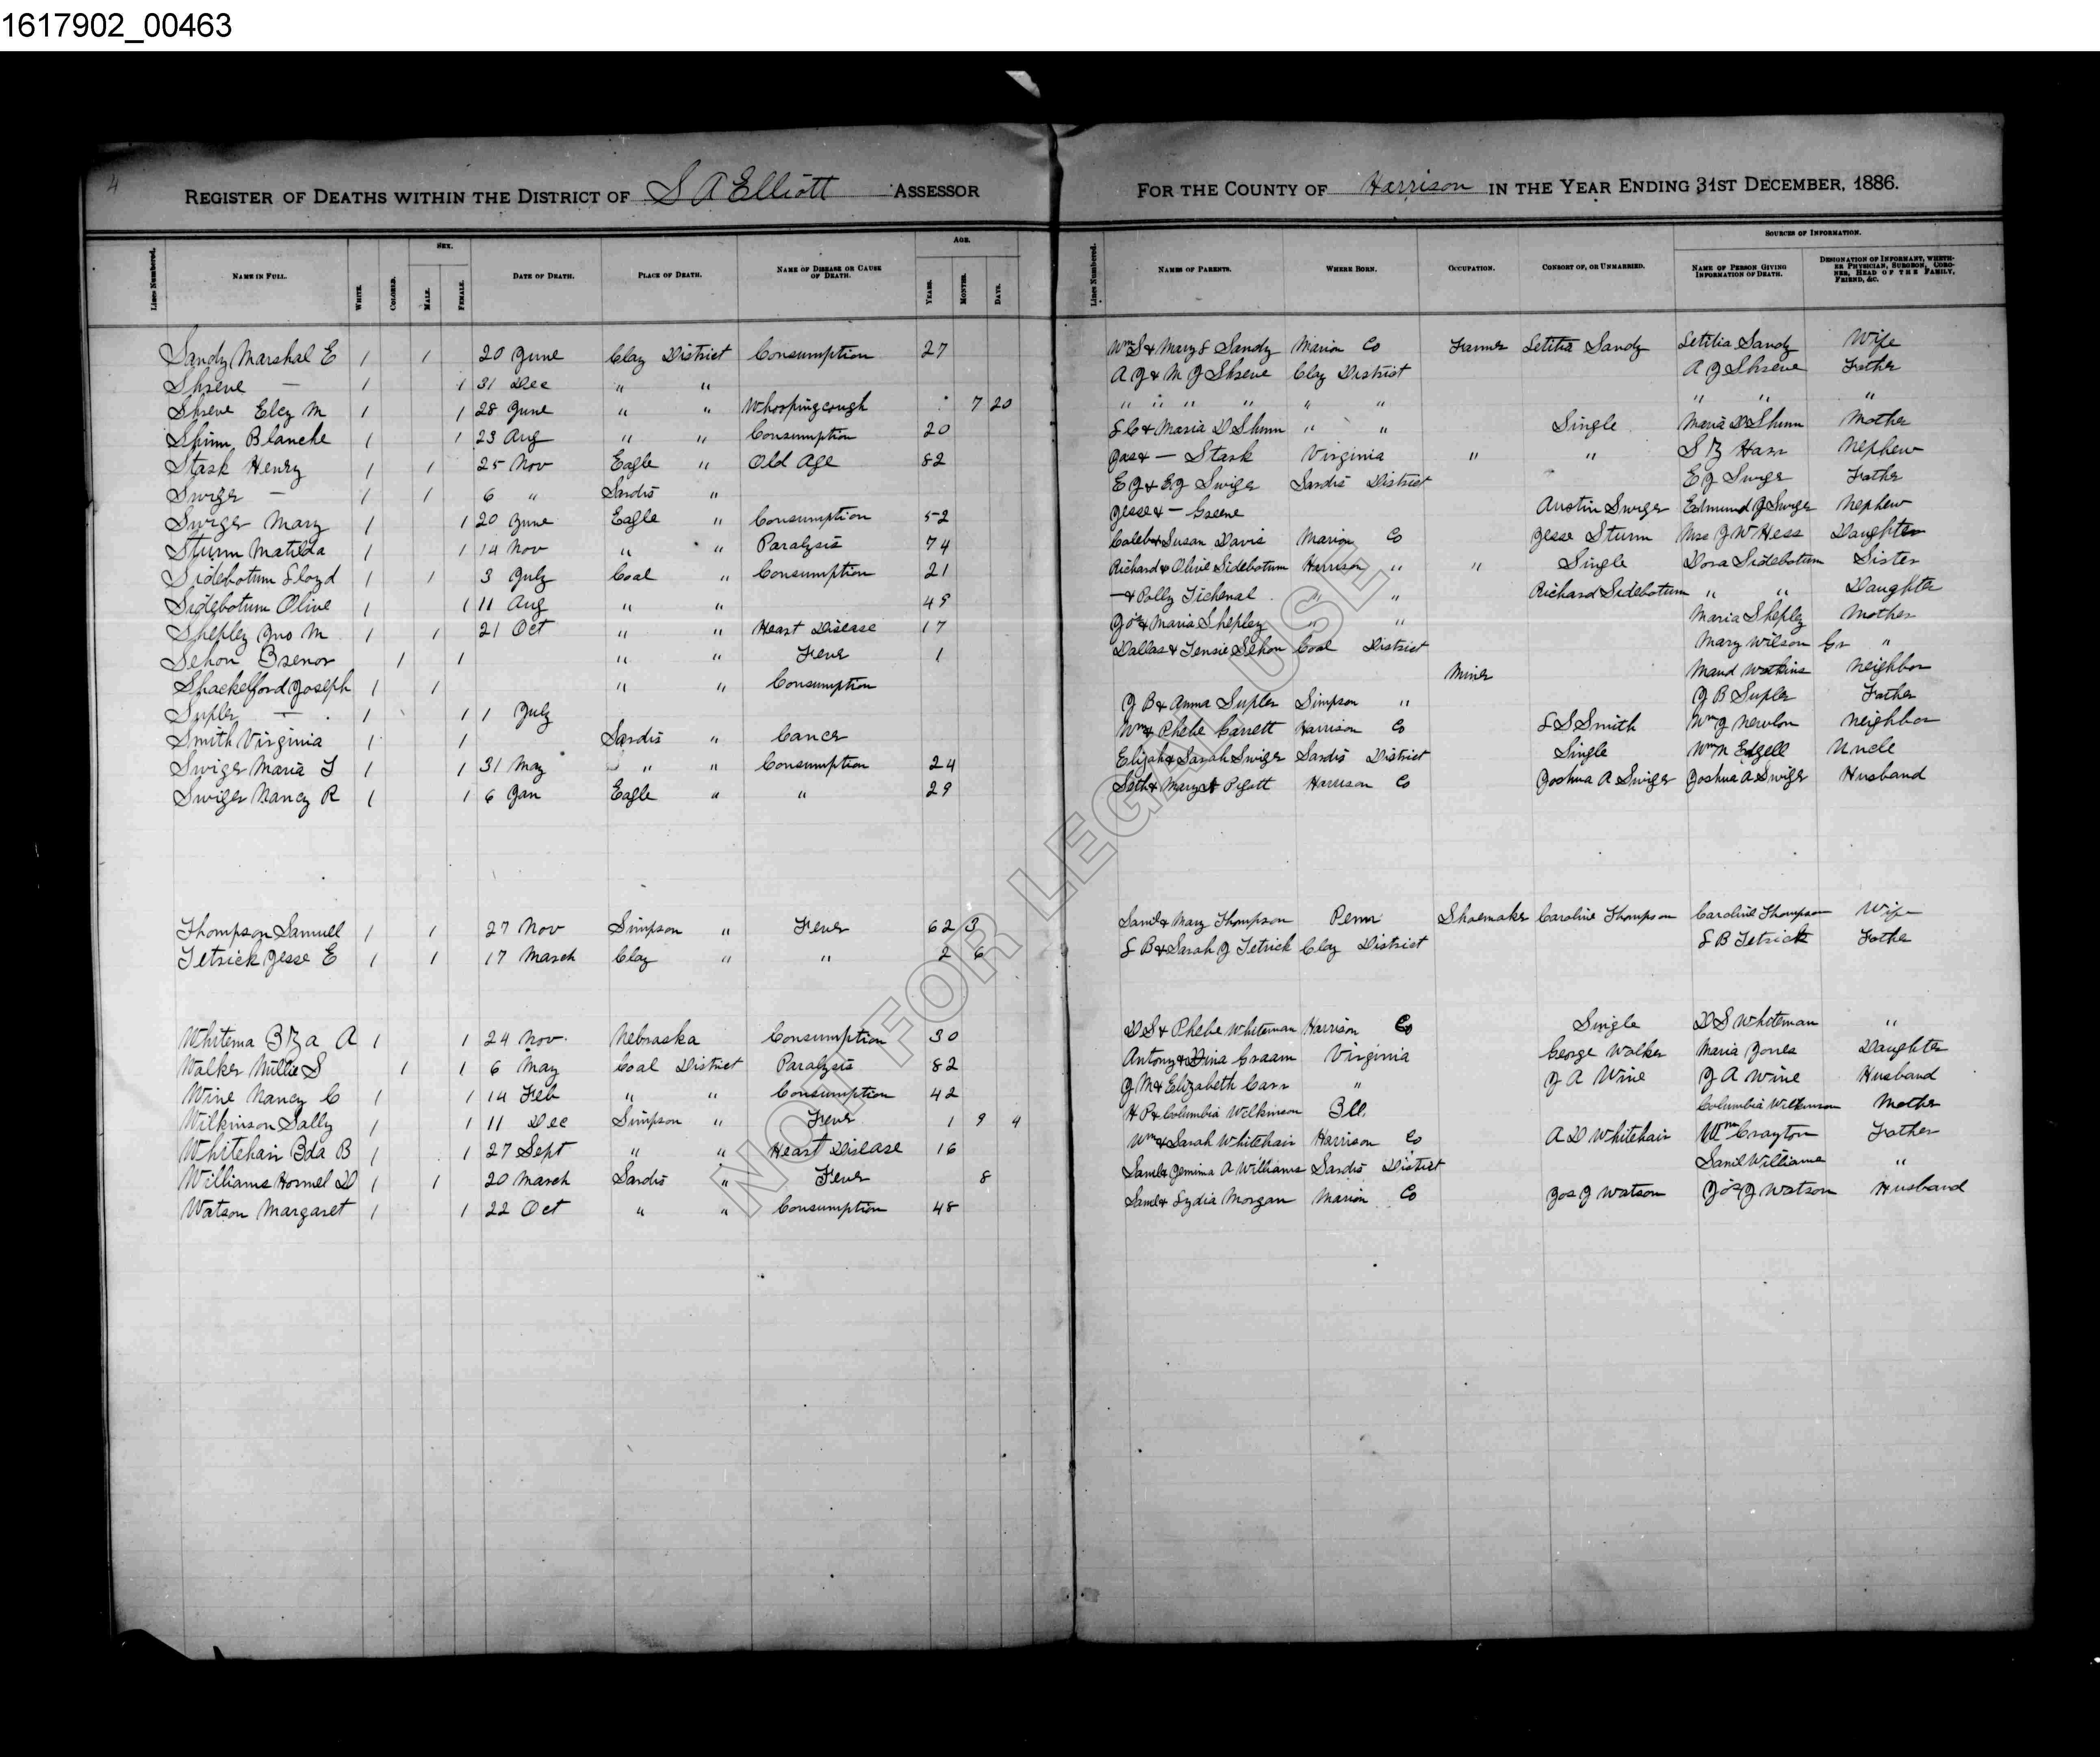 1617902_00463
4
REGISTER OF DEATHS WITHIN THE DISTRICT OF S A Elliott ASSESSOR FOR THE COUNTY OF Harrison IN THE YEAR ENDING 31ST DECEMBER, 1886.
SEX. AGE. SOURCES OF INFORMATION.
LINES NUMBERED. NAME IN FULL. WHITE. COLORED. MALE. FEMALE. DATE OF DEATH. PLACE OF DEATH. NAME OF DISEASE OR CAUSE OF DEATH. YEARS. MONTHS. DAYS. LINES NUMBERED. NAMES OF PARENTS. WHERE BORN. OCCUPATION. CONSORT OF, OR UNMARRIED. NAME OF PERSON GIVING INFORMATION OF DEATH. DESIGNATION OF INFORMANT, WHETHER PHYSICIAN, SURGEON, CORONER, HEAD OF THE FAMILY, FRIEND, &C.
Sandy Marshal E 1 1 20 June Clay District Consumption 27 Wm S & Mary E Sandy Marion Co Farmer Letitia Sandy Letitia Sandy Wife
Shreve — 1 1 31 Dec " " A J & M J Shreve Clay District A J Shreve Father
Shreve Elcy M 1 1 28 June " " Whoopingcough 7 20 " " " " " " " " "
Shinn Blanche 1 1 23 Aug " " Consumption 20 L C & Maria D Shinn " " Single Maria D Shinn Mother
Stark Henry 1 1 25 Nov Eagle " Old Age 82 Jas & — Stark Virginia " " Nephew
Swiger — 1 1 6 " Sardis " E J & E J Swiger Sardis District E J Swiger Father
Swiger Mary 1 1 20 June Eagle " Consumption 52 Jesse & — Greene Austin Swiger Edmund J Swiger Nephew
Sturm Matilda 1 1 14 Nov " " Paralysis 74 Caleb & Susan Davis Marion Co Jesse Sturm Mrs J W Hess Daughter
Sidebotum Lloyd 1 1 3 July Coal " Consumption 21 Richard & Olive Sidebotum Harrison " " Single Dora Sidebotum Sister
Sidebotum Olive 1 1 11 Aug " " 49 — & Polly Tichenal " " Richard Sidebotum " " Daughter
Shepley Jno M 1 1 21 Oct " " Heart Disease 17 Jos & Maria Shepley " " Maria Shepley Mother
Sehon 1 1 " " Fever 1 Dallas & Sehon Coal District Mary Wilson Gr "
Shackelford Joseph 1 1 " " Consumption Miner Maud Watkins Neighbor
Supler — 1 1 1 July J B & Anna Supler Simpson " J B Supler Father
Smith Virginia 1 1 Sardis " Cancer Wm & Phebe Garrett Harrison Co L S Smith Wm J Newlon Neighbor
Swiger Maria 1 1 31 May " " Consumption 24 Elijah & Sarah Swiger Sardis District Single Wm N Edgell Uncle
Swiger Nancy R 1 1 6 Jan Eagle " " 29 Seth & Mary A Harrison Co Joshua A Swiger Joshua A Swiger Husband
Thompson Samuel 1 1 27 Nov Simpson " Fever 62 3 Saml & Mary Thompson Penn Shoemaker Caroline Thompson Caroline Thompson Wife
Tetrick Jesse E 1 1 17 March Clay " " 2 6 L B & Sarah J Tetrick Clay District L B Tetrick Father
Whitema A 1 1 24 Nov. Nebraska Consumption 30 D S & Phebe Whiteman Harrison Co Single D S Whiteman "
Walker Millie S 1 1 6 May Coal District Paralysis 82 Antony & Dina Virginia George Walker Maria Jones Daughter
Wine Nancy C 1 1 14 Feb " " Consumption 42 J M & Elizabeth Carr " J A Wine J A Wine Husband
Wilkinson Sally 1 1 11 Dec Simpson " Fever 1 9 4 H P & Columbia Wilkinson Ill. Columbia Wilkinson Mother
Whitehair Ida B 1 1 27 Sept " " Heart Disease 16 Wm & Sarah Whitehair Harrison Co A D Whitehair Wm Crayton Father
Williams D 1 1 20 March Sardis " Fever 8 Saml & Jemima A Williams Sardis District Saml Williams "
Watson Margaret 1 1 22 Oct " " Consumption 48 Saml & Lydia Morgan Marion Co Jos J Watson Jos J Watson Husband
NOT FOR LEGAL USE